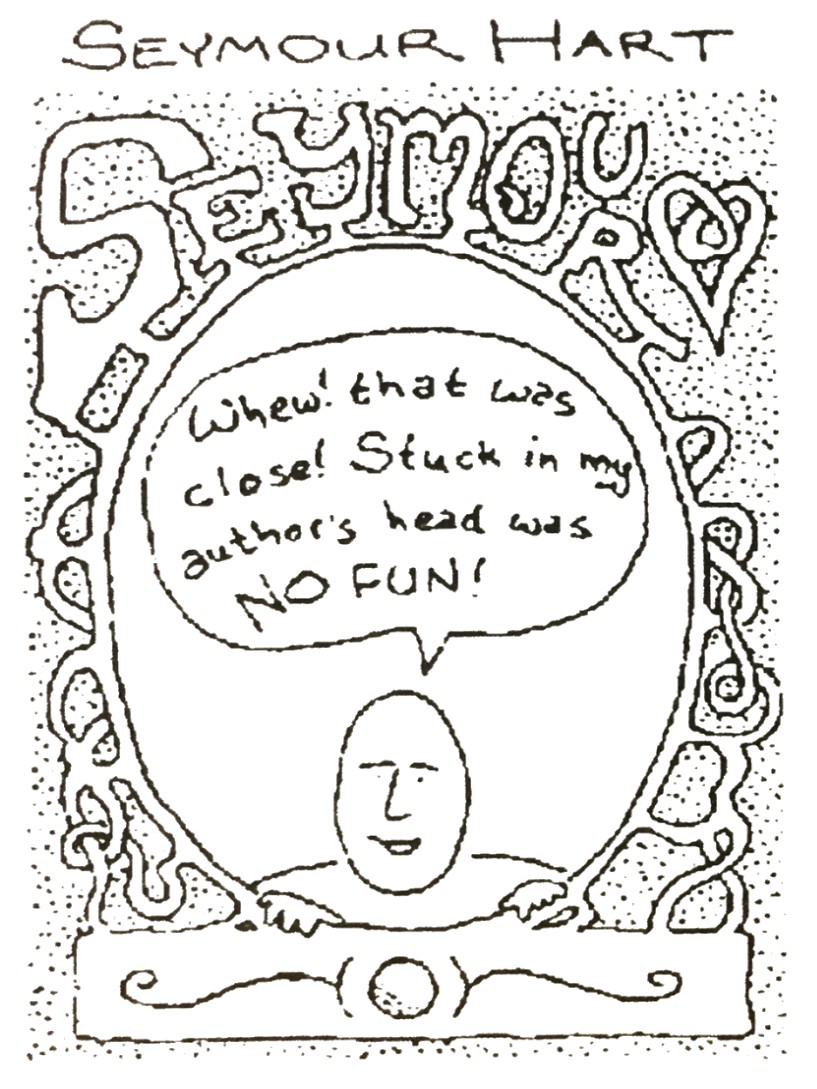 SEYMOUR HART
SEYMOUR
Whew! that was
close! Stuck in my
author's head was
NO FUN!